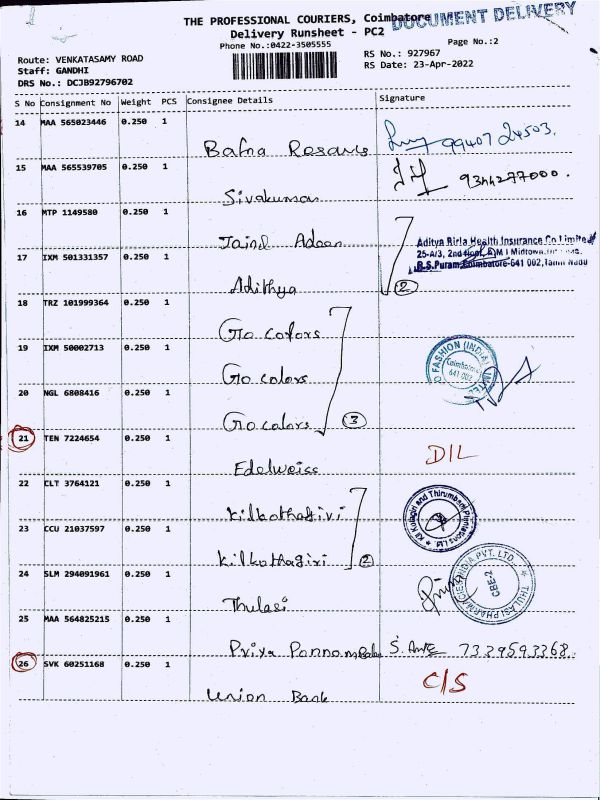 THE PROFESSIONAL COURIERS, Coimbatore
DOCUMENT DELIVERY
Delivery Runsheet - PC2
Phone No.:0422-3505555
Page No.:2
Route: VENKATASAMY ROAD
RS No.: 927967
Staff: GANDHI
RS Date: 23-Apr-2022
DRS No.: DCJB92796702
S No Consignment No Weight PCS Consignee Details Signature
14 MAA 565023446 0.250 1
99407 24503.
Bafna
15 MAA 565539705 0.250 1
9344277000.
Sivakumar
16 MTP 1149580 0.250 1
Aditya Birla Health Insurance Co Limited
25-A/3, 2nd
R.S.Puram, Coimbatore-641 002, Tamil Nadu
17 IXM 501331357 0.250 1
Adithya
2
18 TRZ 101999364 0.250 1
Go colors
19 IXM 50002713 0.250 1
FASHION (INDIA) LIMITED
Coimbatore
641 002
Go colors
20 NGL 6808416 0.250 1
Go colors
3
21 TEN 7224654 0.250 1
D/L
Edelweiss
22 CLT 3764121 0.250 1
Kilkothagiri
23 CCU 21037597 0.250 1
Kilkothagiri
2
24 SLM 294091961 0.250 1
THULASI PHARMACIES INDIA PVT. LTD.,
CBE-2
Thulasi
25 MAA 564825215 0.250 1
Priya
7329593368.
26 SVK 60251168 0.250 1
C/S
Union Bank